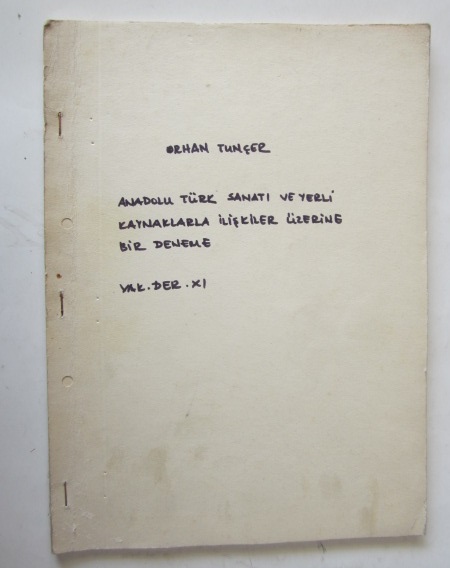 ORHAN TUNÇER
ANADOLU TÜRK SANATI VE YERLİ
KAYNAKLARLA İLİŞKİLER ÜZERİNE
BİR DENEME
VAK. DER. XI